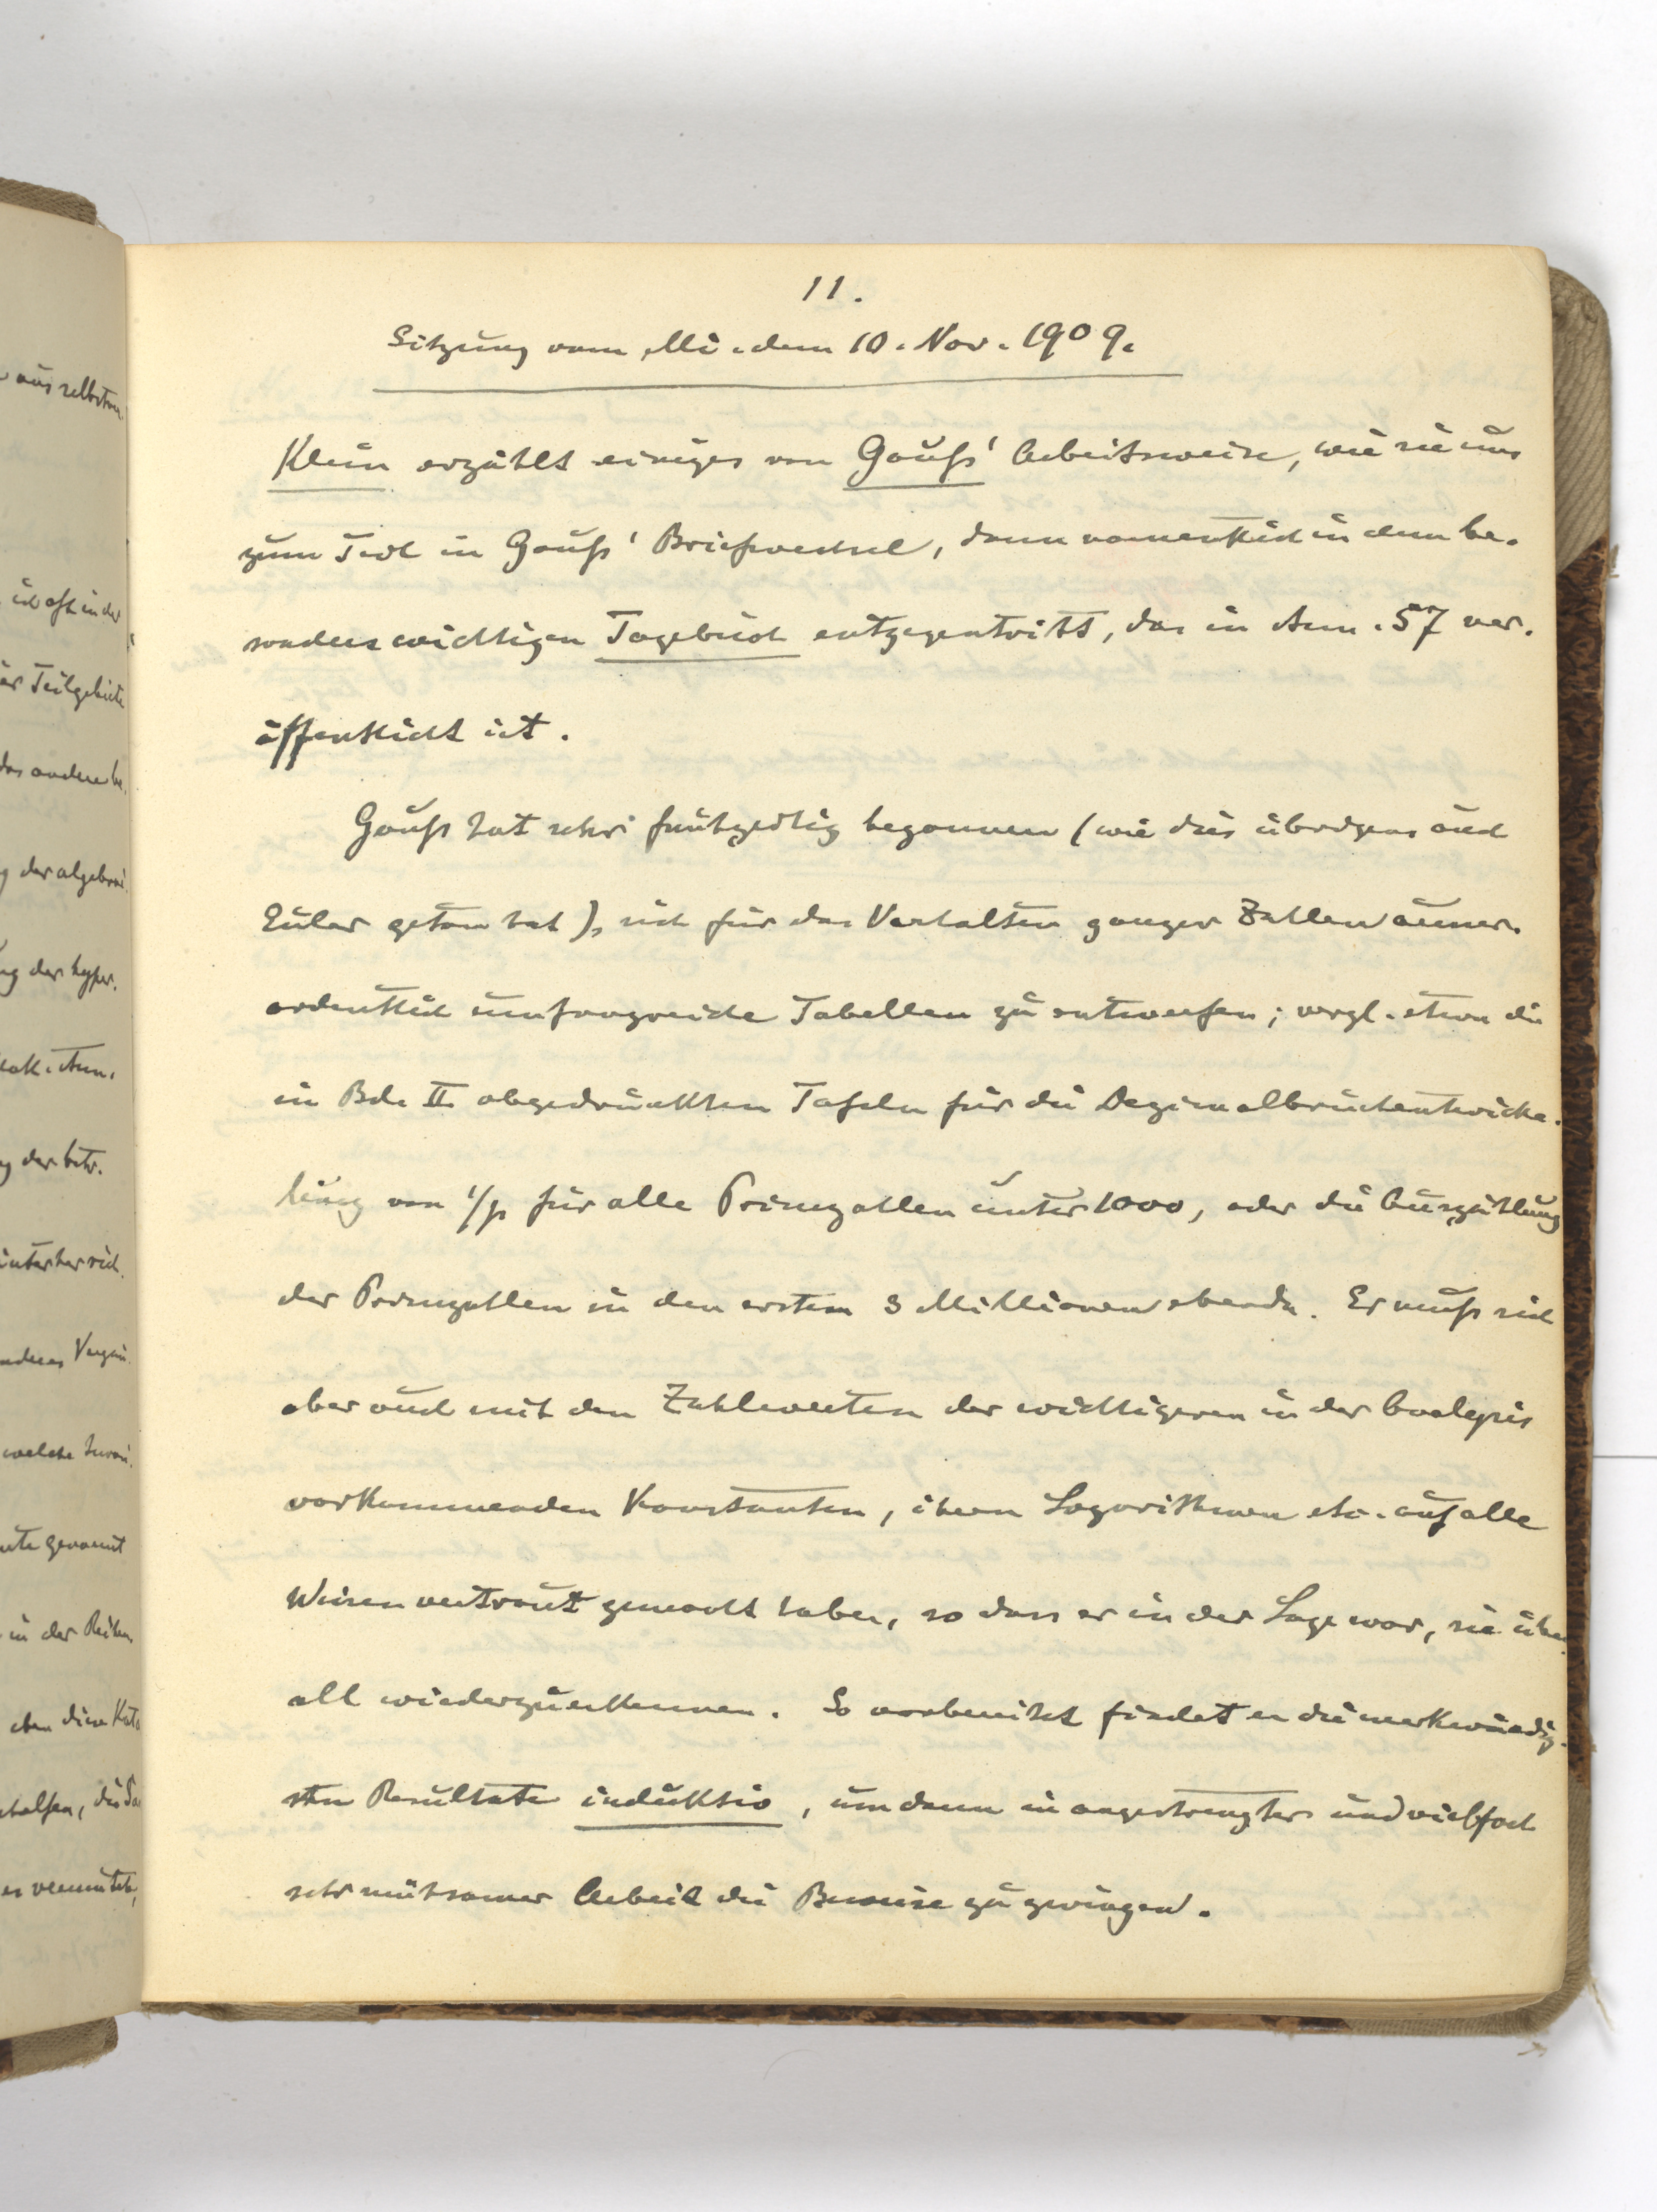 aus selbstver
ich oft in der
der Teilgebiete
das andere be-
der algebrai-
der hyper-
Math. Ann.
der betr.
hinterher sich
anderes
welche
genannt
in der Reihen-
eben diese
er vermutete,
11.
Sitzung vom Mi. dem 10. Nov. 1909.
Klein erzählt einiges von Gauß' Arbeitsweise, wie sie uns
zum Teil in Gauß' Briefwechsel, dann namentlich in dem be-
sonders wichtigen Tagebuch entgegentritt, das in Ann. 57 ver-
öffentlicht ist.
Gauß hat sehr frühzeitig begonnen (wie dies übrigens auch
Euler getan hat), sich für das Verhalten ganzer Zahlen ausser-
ordentlich umfangreiche Tabellen zu entwerfen; vergl. etwa die
in Bd. II abgedruckten Tafeln für die Dezimalbruchentwicke-
lung von 1/p für alle Primzahlen unter 1000, oder die Auszählung
der Primzahlen in den ersten 3 Millionen ebenda. Er muß sich
aber auch mit den Zahlwerten der wichtigeren in der Analysis
vorkommenden Konstanten, ihren Logarithmen etc. auf alle
Weisen vertraut gemacht haben, so dass er in der Lage war, sie über-
all wiederzuerkennen. So vorbereitet findet er die merkwürdig-
sten Resultate induktiv, um dann in angestrengter und vielfach
sehr mühsamer Arbeit die Beweise zu zwingen.